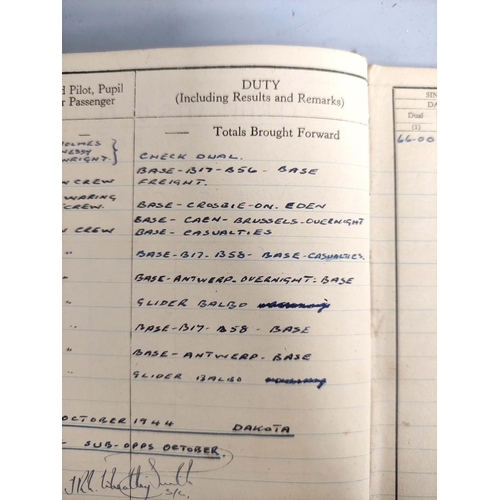 d Pilot, Pupil
r Passenger
DUTY
(Including Results and Remarks)
SIN
DA
Dual
(1)
— Totals Brought Forward
66.00
HOLMES
NESSY
WRIGHT. }
CHECK DUAL.
BASE-B17-B56- BASE
N CREW
FREIGHT.
WARING
CREW.
BASE-CROSBIE-ON. EDEN
BASE- CAEN- BRUSSELS-OVERNIGHT
N CREW
BASE- CASUALTIES
" BASE-B17- B58- BASE-CASUALTIES.
" BASE-ANTWERP-OVERNIGHT-BASE
" GLIDER BALBO
" BASE-B17- B58 - BASE
" BASE- ANTWERP- BASE
" GLIDER BALBO
OCTOBER 1944 DAKOTA
- SUB-OPPS OCTOBER.
S/L.